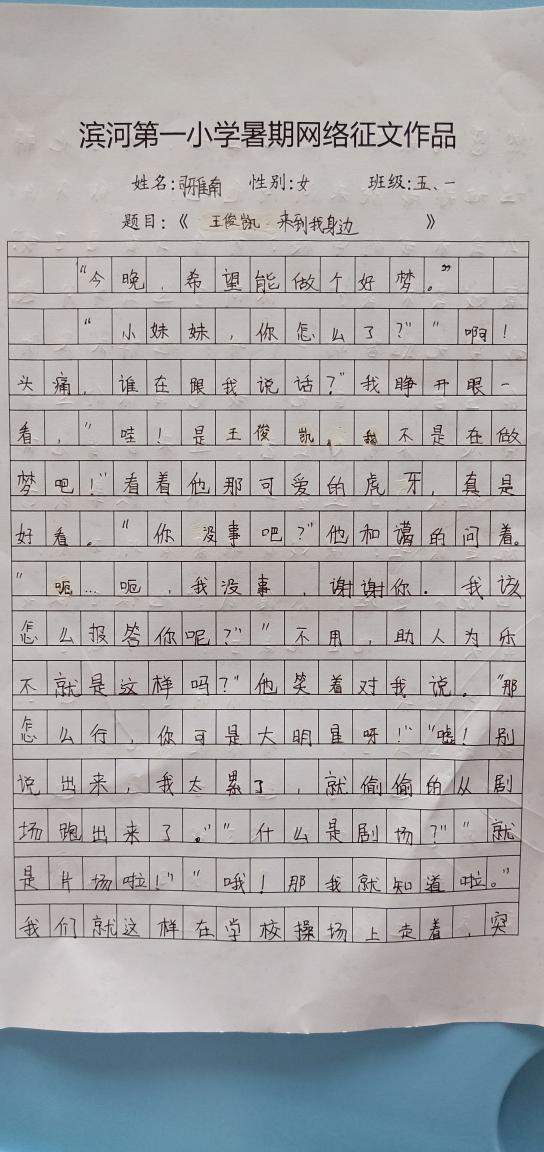 滨河第一小学暑期网络征文作品
姓名:雅南 性别:女 班级:五、一
题目:《王俊凯来到我身边》
“今晚,希望能做个好梦。”
“小妹妹,你怎么了?”“啊!
头痛,谁在跟我说话?”我睁开眼一
看,“哇!是王俊凯,我不是在做
梦吧!”看着他那可爱的虎牙,真是
好看。“你没事吧?”他和蔼的问着。
“呃…呃,我没事,谢谢你.我该
怎么报答你呢?”“不用,助人为乐
不就是这样吗?”他笑着对我说。“那
怎么行,你可是大明星呀!”“嘘!别
说出来,我太累了,就偷偷的从剧
场跑出来了。”“什么是剧场?”“就
是片场啦!”“哦!那我就知道啦。”
我们就这样在学校操场上走着,突